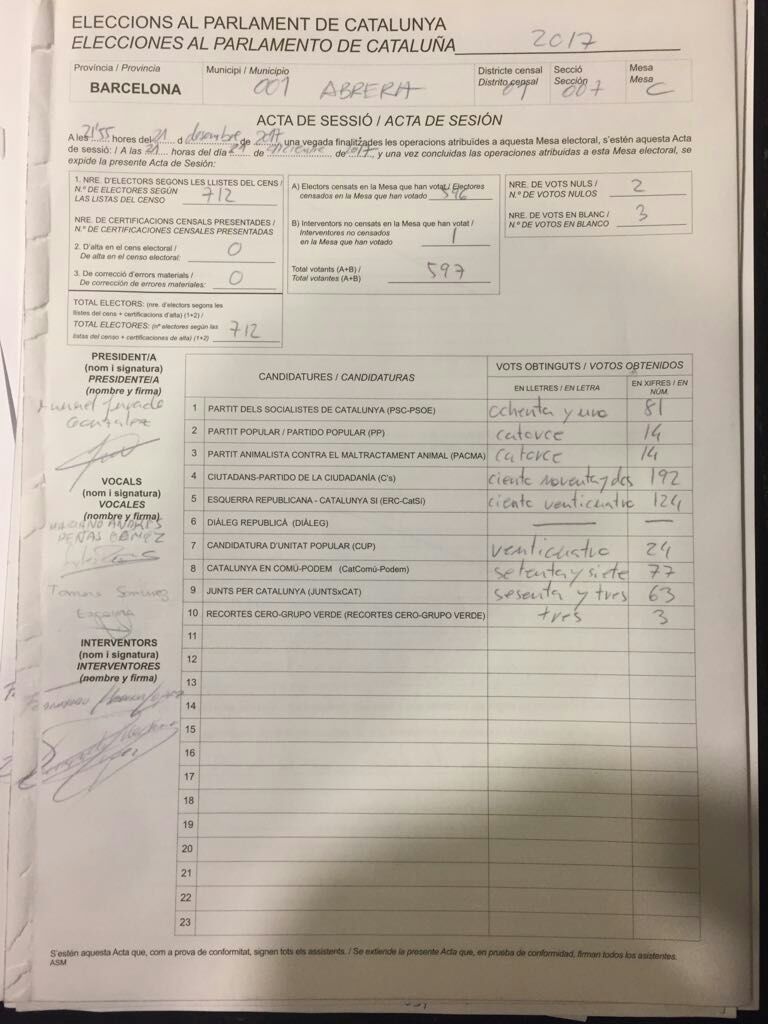 ELECCIONS AL PARLAMENT DE CATALUNYA
ELECCIONES AL PARLAMENTO DE CATALUÑA 2017
Província / Provincia
BARCELONA
Municipi / Municipio
001 ABRERA
Districte censal
Distrito censal
01
Secció
Sección
007
Mesa
Mesa
C
ACTA DE SESSIÓ / ACTA DE SESIÓN
A les 21'55 hores del 21 d desembre de 2017 una vegada finalitzades les operacions atribuïdes a aquesta Mesa electoral, s'estén aquesta Acta
de sessió: / A las 21 horas del día 21 de diciembre de 2017 y una vez concluidas las operaciones atribuidas a esta Mesa electoral, se
expide la presente Acta de Sesión:
1. NRE. D'ELECTORS SEGONS LES LLISTES DEL CENS /
N.º DE ELECTORES SEGÚN
LAS LISTAS DEL CENSO 712
NRE. DE CERTIFICACIONS CENSALS PRESENTADES /
N.º DE CERTIFICACIONES CENSALES PRESENTADAS
2. D'alta en el cens electoral /
De alta en el censo electoral: 0
3. De correcció d'errors materials /
De corrección de errores materiales: 0
TOTAL ELECTORS: (nre. d'electors segons les
llistes del cens + certificacions d'alta) (1+2) /
TOTAL ELECTORES: (nº electores según las
listas del censo + certificaciones de alta) (1+2) 712
A) Electors censats en la Mesa que han votat / Electores
censados en la Mesa que han votado 596
B) Interventors no censats en la Mesa que han votat /
Interventores no censados
en la Mesa que han votado 1
Total votants (A+B) /
Total votantes (A+B) 597
NRE. DE VOTS NULS /
N.º DE VOTOS NULOS 2
NRE. DE VOTS EN BLANC /
N.º DE VOTOS EN BLANCO 3
PRESIDENT/A
(nom i signatura)
PRESIDENTE/A
(nombre y firma)
Gonzalez
VOCALS
(nom i signatura)
VOCALES
(nombre y firma)
MARIANO ANDRES
PEÑAS GOMEZ
INTERVENTORS
(nom i signatura)
INTERVENTORES
(nombre y firma)
CANDIDATURES / CANDIDATURAS
VOTS OBTINGUTS / VOTOS OBTENIDOS
EN LLETRES / EN LETRA
EN XIFRES / EN
NÚM.
1 PARTIT DELS SOCIALISTES DE CATALUNYA (PSC-PSOE) ochenta y uno 81
2 PARTIT POPULAR / PARTIDO POPULAR (PP) catorce 14
3 PARTIT ANIMALISTA CONTRA EL MALTRACTAMENT ANIMAL (PACMA) catorce 14
4 CIUTADANS-PARTIDO DE LA CIUDADANÍA (C's) ciento noventa y dos 192
5 ESQUERRA REPUBLICANA - CATALUNYA SI (ERC-CatSí) ciento venticuatro 124
6 DIÀLEG REPUBLICÀ (DIÀLEG) — —
7 CANDIDATURA D'UNITAT POPULAR (CUP) venticuatro 24
8 CATALUNYA EN COMÚ-PODEM (CatComú-Podem) setenta y siete 77
9 JUNTS PER CATALUNYA (JUNTSxCAT) sesenta y tres 63
10 RECORTES CERO-GRUPO VERDE (RECORTES CERO-GRUPO VERDE) tres 3
11
12
13
14
15
16
17
18
19
20
21
22
23
S'estén aquesta Acta que, com a prova de conformitat, signen tots els assistents. / Se extiende la presente Acta que, en prueba de conformidad, firman todos los asistentes.
ASM